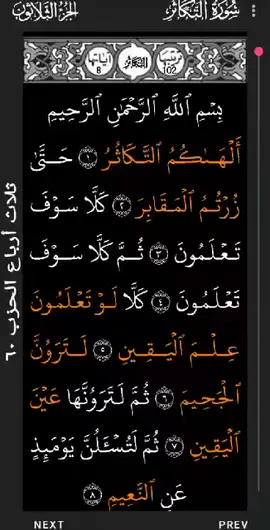 سُورَةُ التَّكَاثُرِ
الجُزْءُ الثَّلَاثُونَ
ترتيبها 102
التكاثر
آياتها 8
بِسْمِ ٱللَّهِ ٱلرَّحْمَٰنِ ٱلرَّحِيمِ
أَلْهَىٰكُمُ ٱلتَّكَاثُرُ ١ حَتَّىٰ
زُرْتُمُ ٱلْمَقَابِرَ ٢ كَلَّا سَوْفَ
تَعْلَمُونَ ٣ ثُمَّ كَلَّا سَوْفَ
تَعْلَمُونَ ٤ كَلَّا لَوْ تَعْلَمُونَ
عِلْمَ ٱلْيَقِينِ ٥ لَتَرَوُنَّ
ٱلْجَحِيمَ ٦ ثُمَّ لَتَرَوُنَّهَا عَيْنَ
ٱلْيَقِينِ ٧ ثُمَّ لَتُسْـَٔلُنَّ يَوْمَئِذٍ
عَنِ ٱلنَّعِيمِ ٨
ثلاث أرباع الحزب ٦٠
NEXT
PREV